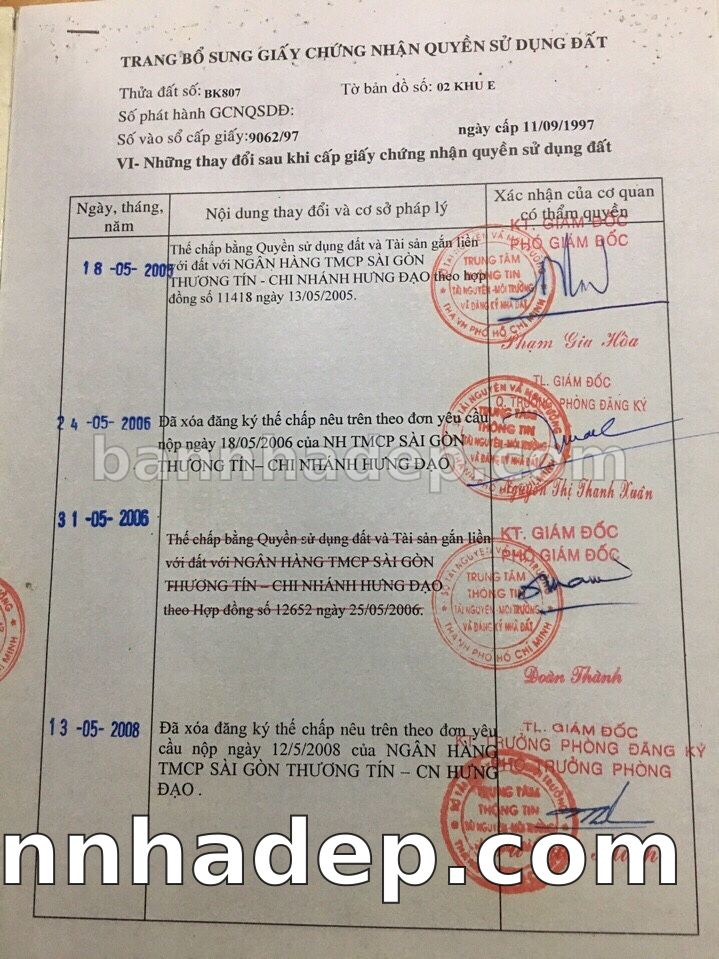 TRANG BỔ SUNG GIẤY CHỨNG NHẬN QUYỀN SỬ DỤNG ĐẤT
Thửa đất số: BK807 Tờ bản đồ số: 02 KHU E
Số phát hành GCNQSDĐ:
Số vào sổ cấp giấy:9062/97 ngày cấp 11/09/1997
VI- Những thay đổi sau khi cấp giấy chứng nhận quyền sử dụng đất
Ngày, tháng, năm
Nội dung thay đổi và cơ sở pháp lý
Xác nhận của cơ quan có thẩm quyền
18 -05- 2005
Thế chấp bằng Quyền sử dụng đất và Tài sản gắn liền
với đất với NGÂN HÀNG TMCP SÀI GÒN
THƯƠNG TÍN - CHI NHÁNH HƯNG ĐẠO theo hợp
đồng số 11418 ngày 13/05/2005.
KT. GIÁM ĐỐC
PHÓ GIÁM ĐỐC
TRUNG TÂM
THÔNG TIN
TÀI NGUYÊN-MÔI TRƯỜNG
VÀ ĐĂNG KÝ NHÀ ĐẤT
THÀNH PHỐ HỒ CHÍ MINH
Phạm Gia Hòa
24 -05- 2006
Đã xóa đăng ký thế chấp nêu trên theo đơn yêu cầu
nộp ngày 18/05/2006 của NH TMCP SÀI GÒN
THƯƠNG TÍN– CHI NHÁNH HƯNG ĐẠO
TL. GIÁM ĐỐC
Q. TRƯỞNG PHÒNG ĐĂNG KÝ
TRUNG TÂM
THÔNG TIN
TÀI NGUYÊN-MÔI TRƯỜNG
VÀ ĐĂNG KÝ NHÀ ĐẤT
Nguyễn Thị Thanh Xuân
bannhadep.com
31 -05- 2006
Thế chấp bằng Quyền sử dụng đất và Tài sản gắn liền
với đất với NGÂN HÀNG TMCP SÀI GÒN
THƯƠNG TÍN – CHI NHÁNH HƯNG ĐẠO
theo Hợp đồng số 12652 ngày 25/05/2006.
KT. GIÁM ĐỐC
PHÓ GIÁM ĐỐC
TRUNG TÂM
THÔNG TIN
TÀI NGUYÊN-MÔI TRƯỜNG
VÀ ĐĂNG KÝ NHÀ ĐẤT
THÀNH PHỐ HỒ CHÍ MINH
Đoàn Thành
13 -05- 2008
Đã xóa đăng ký thế chấp nêu trên theo đơn yêu
cầu nộp ngày 12/5/2008 của NGÂN HÀNG
TMCP SÀI GÒN THƯƠNG TÍN – CN HƯNG
ĐẠO .
TL. GIÁM ĐỐC
KT. TRƯỞNG PHÒNG ĐĂNG KÝ
PHÓ TRƯỞNG PHÒNG
TRUNG TÂM
THÔNG TIN
TÀI NGUYÊN-MÔI TRƯỜNG
nnhadep.com